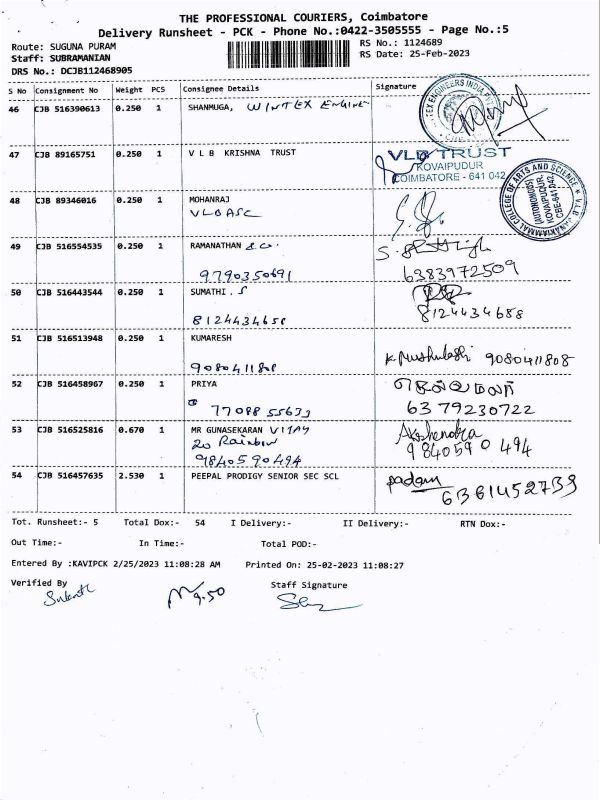 THE PROFESSIONAL COURIERS, Coimbatore
Delivery Runsheet - PCK - Phone No.:0422-3505555 - Page No.:5
Route: SUGUNA PURAM
RS No.: 1124689
Staff: SUBRAMANIAN
RS Date: 25-Feb-2023
DRS No.: DCJB112468905
S No Consignment No Weight PCS Consignee Details Signature
46 CJB 516390613 0.250 1 SHANMUGA, WINTEX ENGINE
47 CJB 89165751 0.250 1 V L B KRISHNA TRUST
VLB TRUST
KOVAIPUDUR
COIMBATORE - 641 042
COLLEGE OF ARTS AND SCIENCE
(AUTONOMOUS)
KOVAIPUDUR,
CBE-641 042.
48 CJB 89346016 0.250 1 MOHANRAJ
VLBASC
49 CJB 516554535 0.250 1 RAMANATHAN
9790350691
6383972509
50 CJB 516443544 0.250 1 SUMATHI . S
8124434658
8124434688
51 CJB 516513948 0.250 1 KUMARESH
9080411808
9080411808
52 CJB 516458967 0.250 1 PRIYA
செல்வமலர்
6379230722
53 CJB 516525816 0.670 1 MR GUNASEKARAN VIJAY
20 Rainbow
9840590494
Akshendra
9840590494
54 CJB 516457635 2.530 1 PEEPAL PRODIGY SENIOR SEC SCL
padam
6361452739
Tot. Runsheet:- 5 Total Dox:- 54 I Delivery:- II Delivery:- RTN Dox:-
Out Time:- In Time:- Total POD:-
Entered By :KAVIPCK 2/25/2023 11:08:28 AM Printed On: 25-02-2023 11:08:27
Verified By Staff Signature
9.50